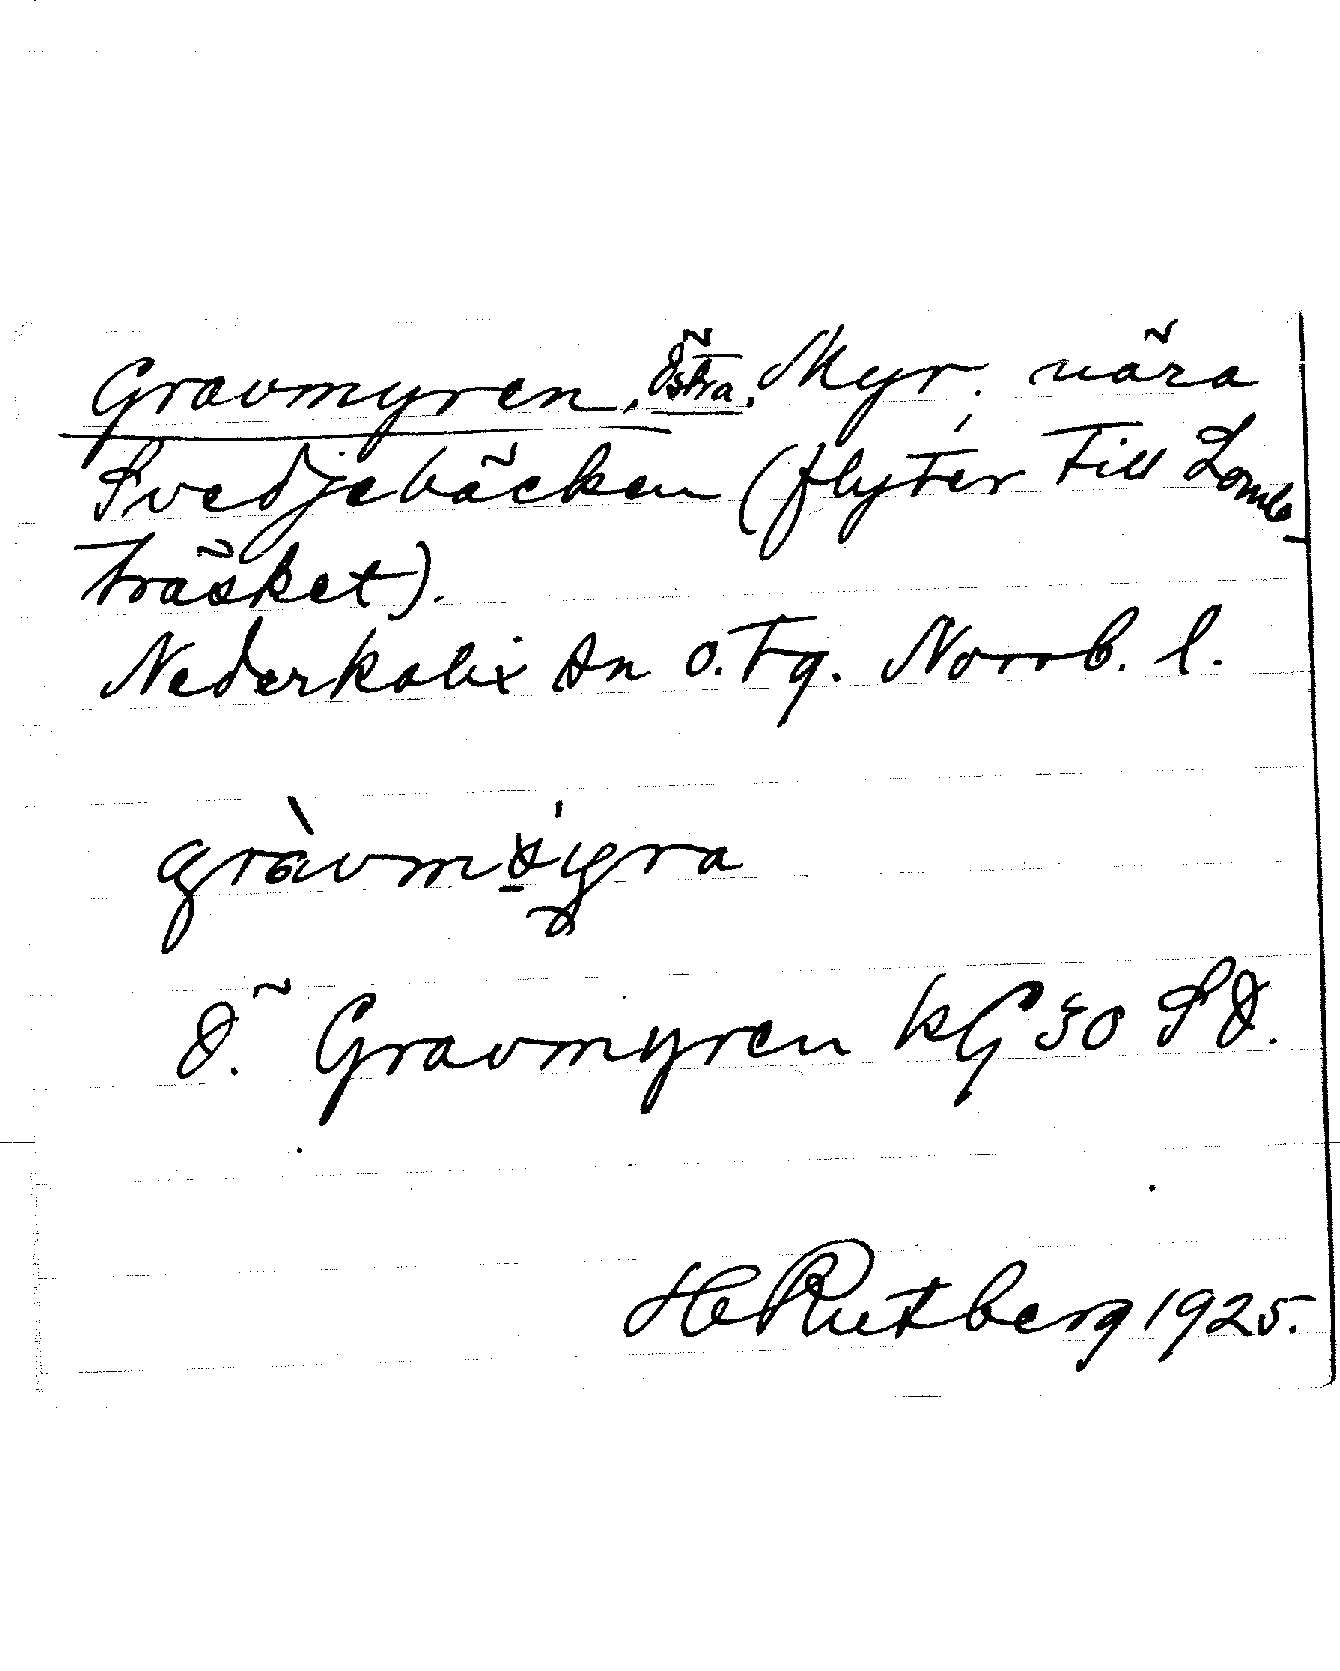 Gravmyren, Östra, Myr. nära
Svedjebäcken (flyter till Lomb-
träsket).
Nederkalix sn o. tg. Norrb. l.
Ö. Gravmyren kG 30 SO.
H Rutberg 1925.